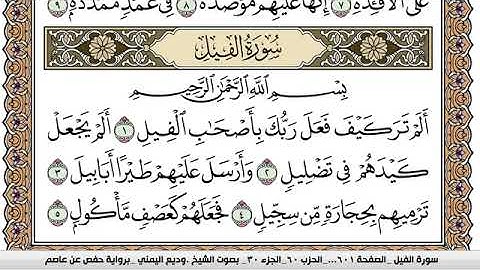 عَلَى الْأَفْـِٔدَةِ ٧ إِنَّهَا عَلَيْهِم مُّؤْصَدَةٌ ٨ فِي عَمَدٍ مُّمَدَّدَةٍ ٩
سُورَةُ الْفِيلِ
بِسْمِ اللَّهِ الرَّحْمَٰنِ الرَّحِيمِ
أَلَمْ تَرَ كَيْفَ فَعَلَ رَبُّكَ بِأَصْحَابِ الْفِيلِ ١ أَلَمْ يَجْعَلْ
كَيْدَهُمْ فِي تَضْلِيلٍ ٢ وَأَرْسَلَ عَلَيْهِمْ طَيْرًا أَبَابِيلَ ٣
تَرْمِيهِم بِحِجَارَةٍ مِّن سِجِّيلٍ ٤ فَجَعَلَهُمْ كَعَصْفٍ مَّأْكُولٍ ٥
سورة الفيل _الصفحة ٦٠١..._الحزب ٦٠_الجزء ٣٠_ بصوت الشيخ .وديع اليمني _برواية حفص عن عاصم